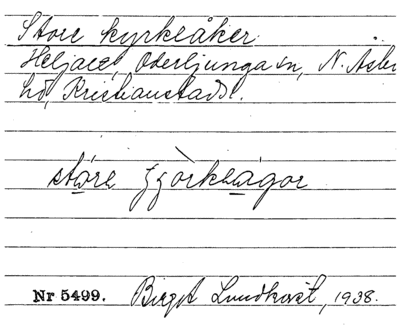 Store kyrkeåker
Heljaröd, Oderljunga sn, N. Åsbo
hd, Kristianstads l.
störe çjörkeågor
Nr 5499. Birgit Lundkvist, 1938.